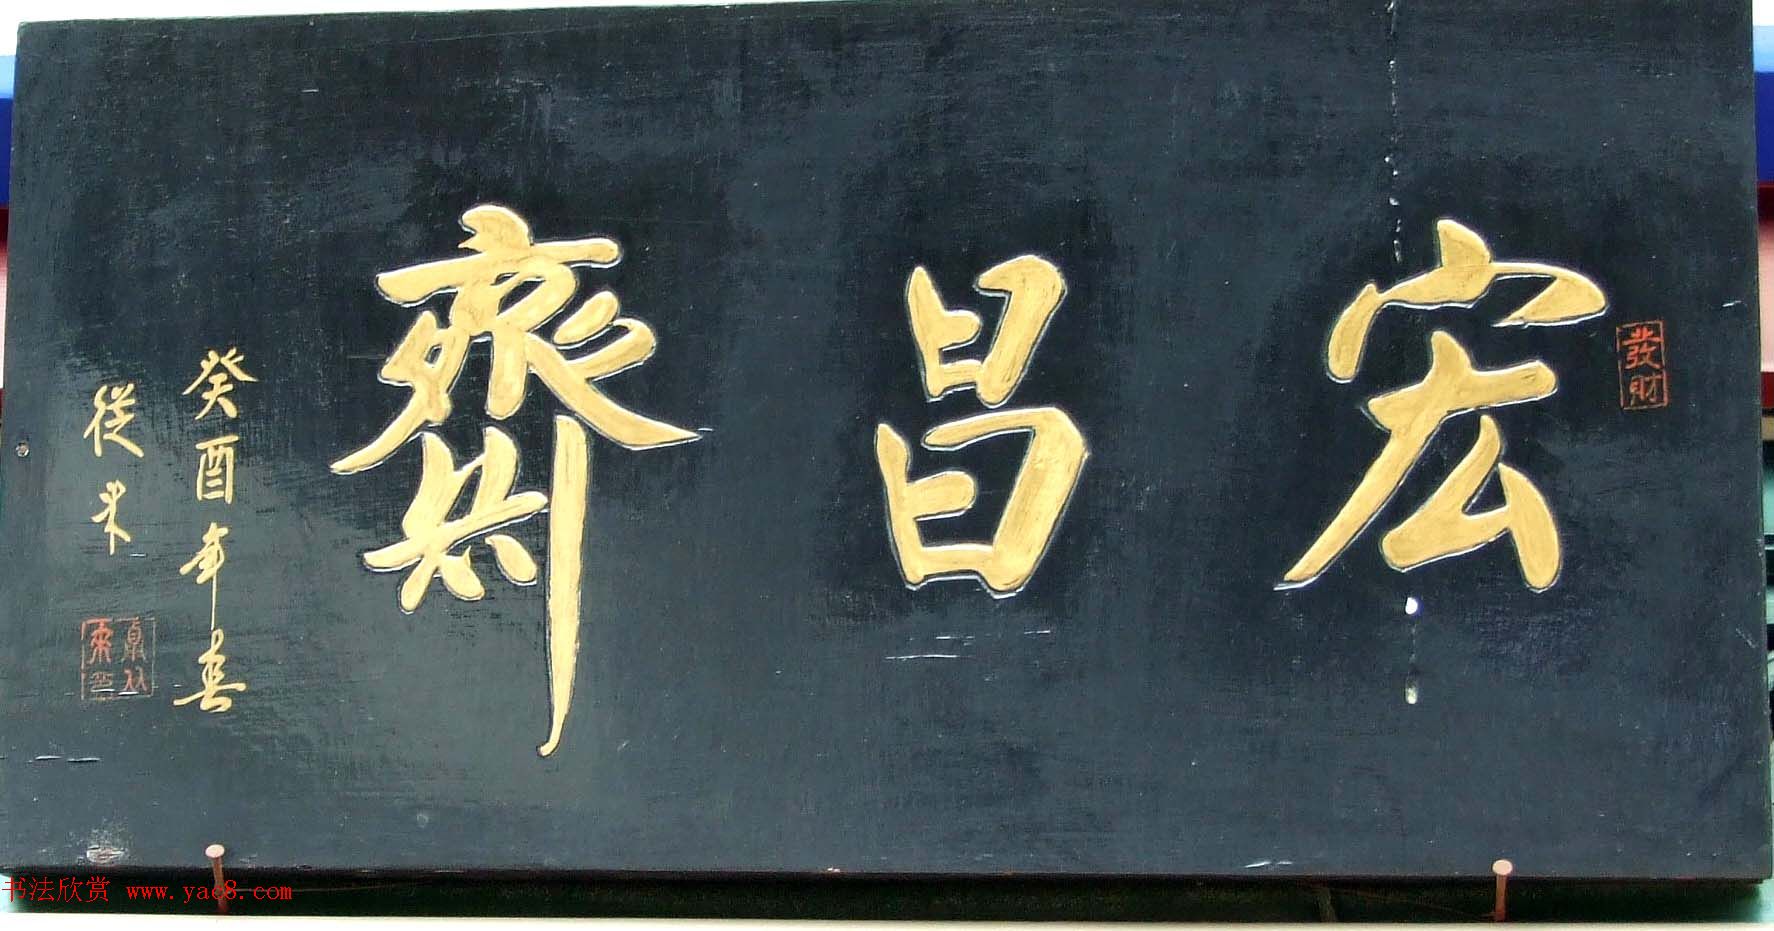 宏昌齋
發財
癸酉年春
從米
书法欣赏 www.yac8.com